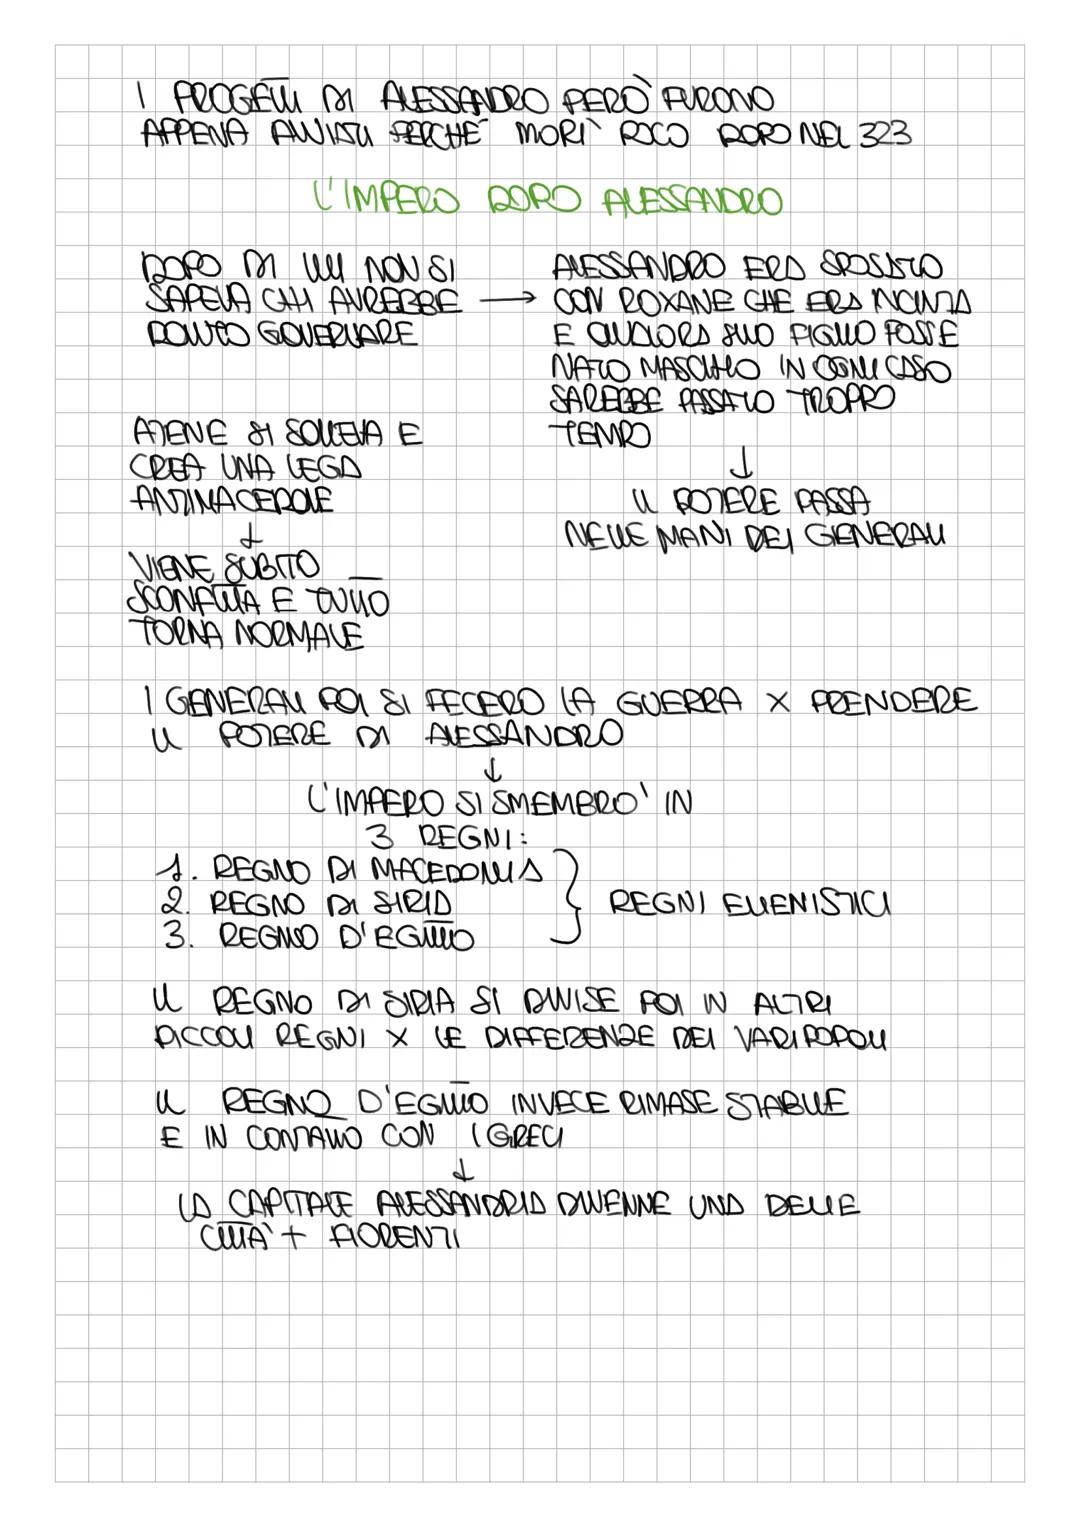 I PROGETTI DI ALESSANDRO PERÒ FURONO
APPENA AVVIATI PERCHÉ MORÌ POCO DOPO NEL 323
L'IMPERO DOPO ALESSANDRO
DOPO DI LUI NON SI
SAPEVA CHI AVREBBE →
DOVUTO GOVERNARE
ALESSANDRO ERA SPOSATO
CON ROXANE CHE ERA INCINTA
E QUALORA SUO FIGLIO FOSSE
NATO MASCHIO IN OGNI CASO
SAREBBE PASSATO TROPPO
TEMPO
↓
IL POTERE PASSA
NELLE MANI DEI GENERALI
ATENE SI SOLLEVA E
CREA UNA LEGA
ANTIMACEDONE
↓
VIENE SUBITO
SCONFITTA E TUTTO
TORNA NORMALE
I GENERALI POI SI FECERO LA GUERRA X PRENDERE
IL POTERE DI ALESSANDRO
↓
L'IMPERO SI SMEMBRO' IN
3 REGNI:
1. REGNO DI MACEDONIA
2. REGNO DI SIRIA
3. REGNO D'EGITTO
} REGNI ELLENISTICI
IL REGNO DI SIRIA SI DIVISE POI IN ALTRI
PICCOLI REGNI X LE DIFFERENZE DEI VARI POPOLI
IL REGNO D'EGITTO INVECE RIMASE STABILE
E IN CONTATTO CON I GRECI
↓
LA CAPITALE ALESSANDRIA DIVENNE UNA DELLE
CITTA' + FIORENTI